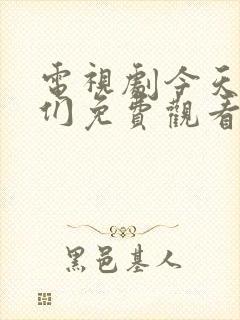 電視劇今天
们免費觀看
黑邑基人